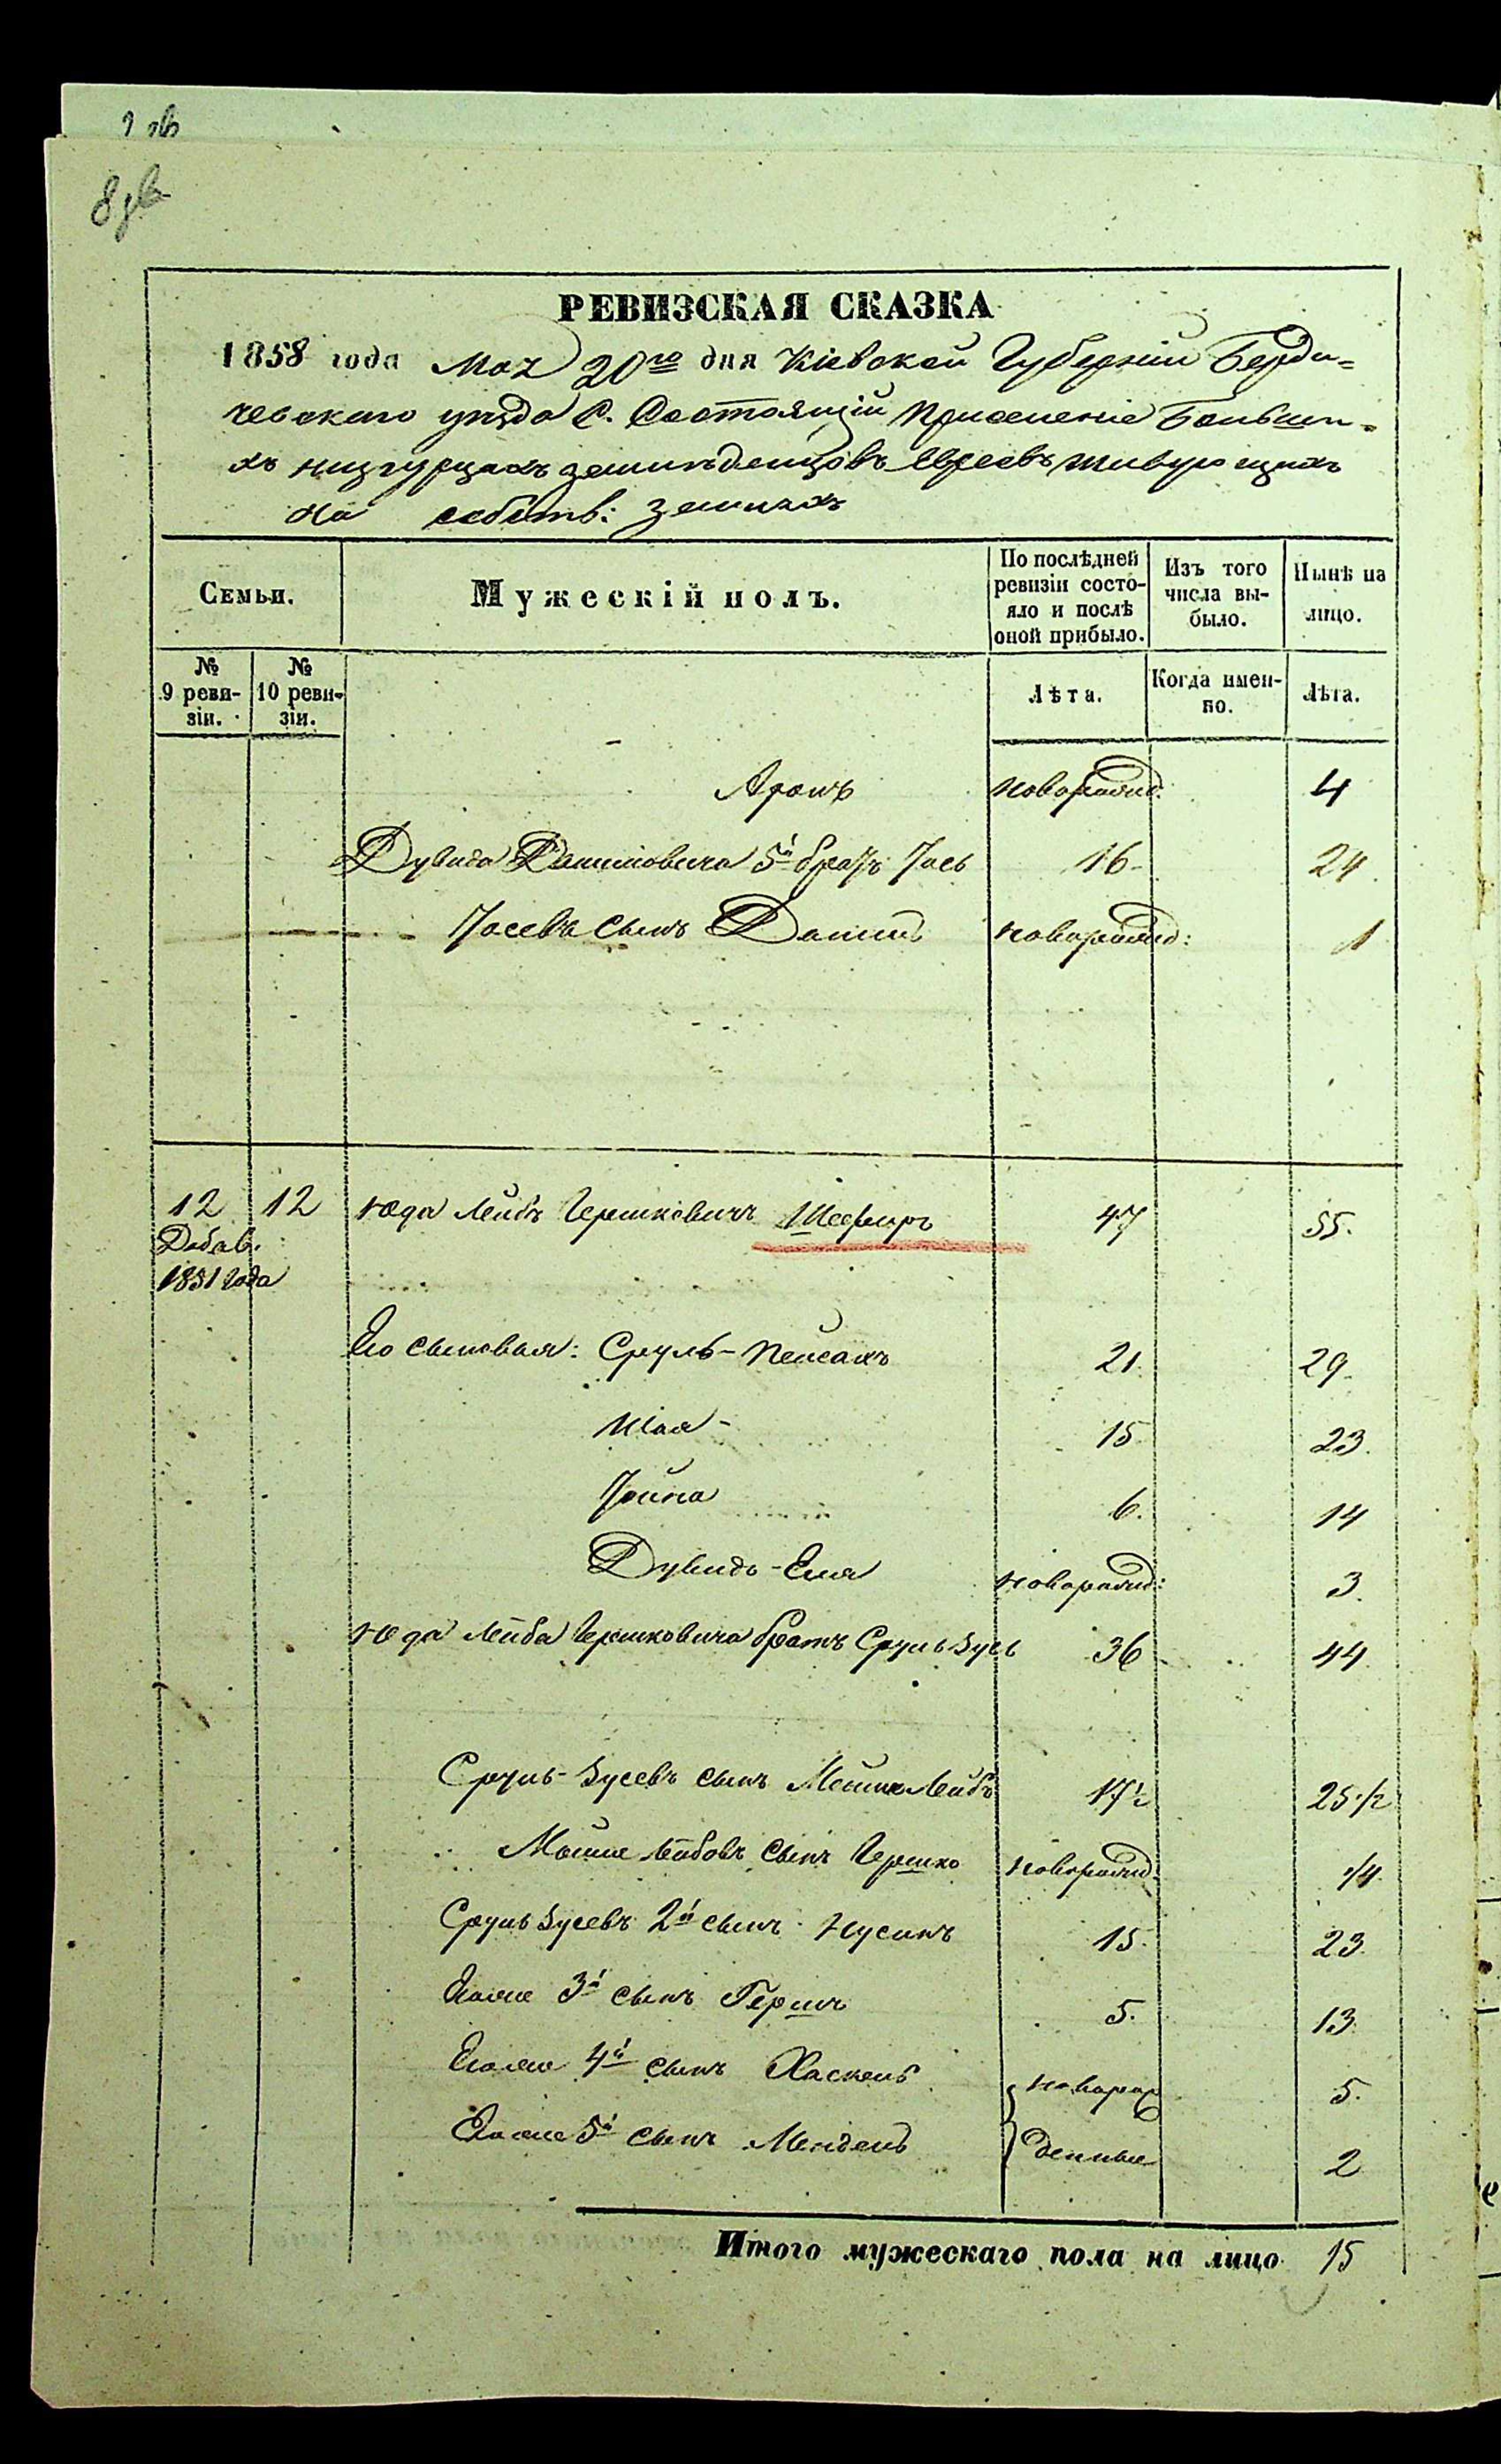 8 зв
РЕВИЗСКАЯ СКАЗКА
1858 года Мая 20го дня Кіевской ГуберніиБерди=
чевскаго уезда С. Состоящіи при селеніе Большы=
хъ низгурцахъ земледельцовъ Евреевъ живущихъ
на собств: земляхъ
Семьи.
Мужескій полъ.
По послѣдней ревизіи состо-
яло и послѣ оной прибыло.
Изъ того числа вы-
было.
Нынѣ на лицо.
№ 9 реви-
зіи.
№ 10 реви-
зіи.
Лѣта.
Когда имен-
но.
Лѣта.
Аронъ новорожд. 4
Дувида Данилковича 5й братъ Іось 16 24
Іосевъ сынъ Данилъ новорожд: 1
12 12 Юда Лейбъ Гершковичъ Шефиръ 47 55.
Добав.
1851 года
Его сыновья: Сруль-Пейсахъ 21. 29.
Шая - 15 23.
Іойна 6. 14
Дувидъ-Еля новорожд: 3.
Юда Лейба Гершковича братъ Сруль Зусь 36 44
Сруль-Зусевъ сынъ Мошко Лейбъ 17½ 25½
Мошко Лейбовъ сынъ Гершко новорожд: 1/4
Сруль Зусевъ 2й сынъ Нусинъ 15. 23.
Егоже 3й сынъ Гершъ 5. 13.
Егоже 4й сынъ Хаскель новорож 5.
Егоже 5й сынъ Мендель денные 2
Итого мужескаго пола на лицо 15